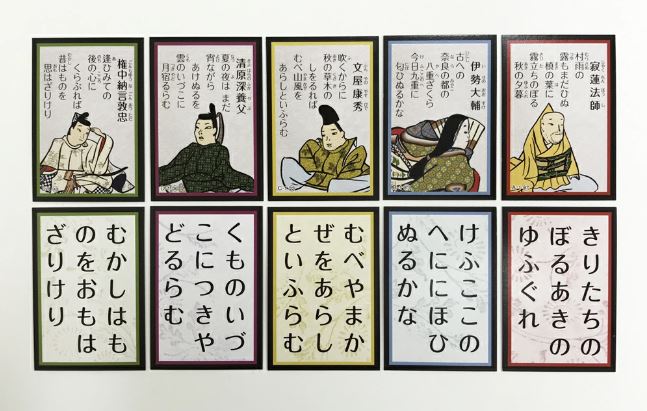 寂蓮法師
村雨の
露もまだひぬ
槙の葉に
霧立ちのぼる
秋の夕暮
伊勢大輔
古への
奈良の都の
八重ざくら
今日九重に
匂ひぬるかな
文屋康秀
吹くからに
秋の草木の
しをるれば
むべ山風を
あらしといふらむ
清原深養父
夏の夜は まだ
宵ながら
あけぬるを
雲のいづこに
月宿るらむ
権中納言敦忠
逢ひみての
後の心に
くらぶれば
昔はものを
思はざりけり
きりたちの
ぼるあきの
ゆふぐれ
けふここの
へににほひ
ぬるかな
むべやまか
ぜをあらし
といふらむ
くものいづ
こにつきや
どるらむ
むかしはも
のをおもは
ざりけり